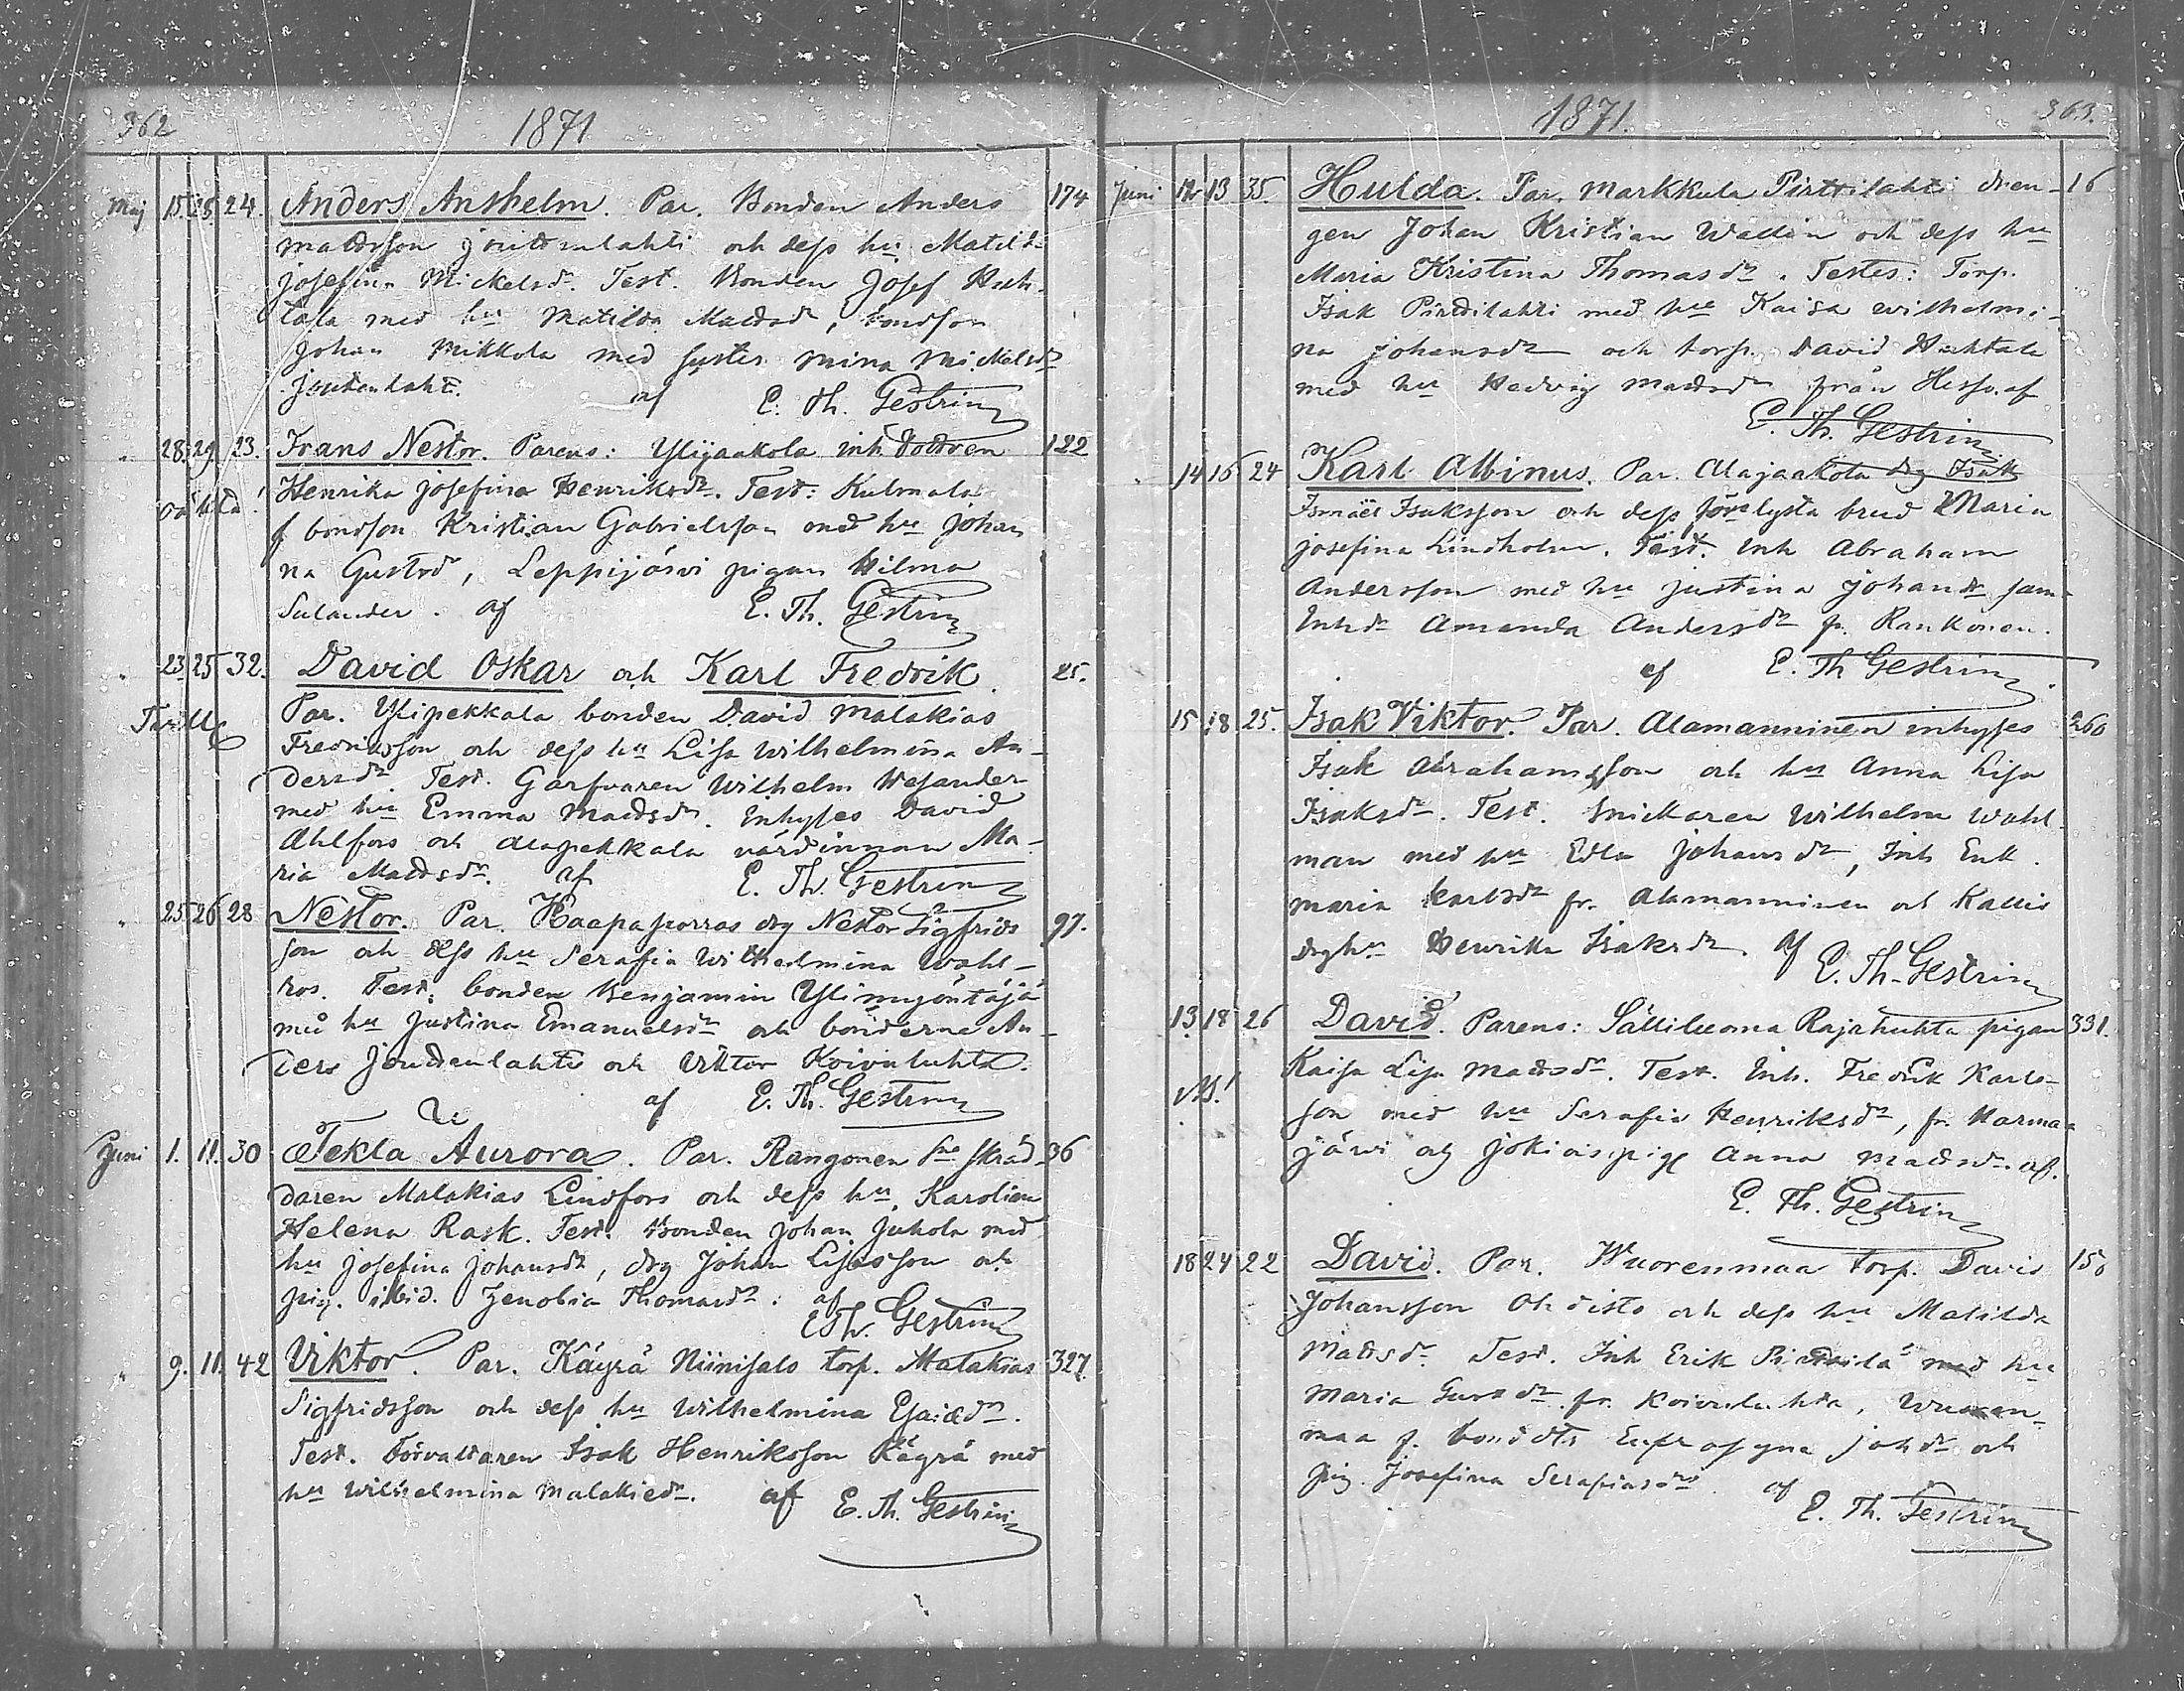 362
1871
Maj 15. 25. 24. Anders Anshelm. Par. Bonden Anders 174
Mattsson Joutsenlahti och dess hu Matilda
Josefina Mickelsdr. Test. Bonden Josef Huh-
tala med hu Matilda Mattsdr, bondson
Johan Mikkola med syster Mina Mickelsdr
Joutsenlahti. af E. Th. Gestrin
" 28. 29. 23. Frans Nestor. Parens: Ylijaakola inh. dottren 122
oäkta! Henrika Josefina Henriksdr. Test: Kulmala
f bondson Kristian Gabrielsson med hu Johan
na Gustdr, Leppijärvi pigan Hilma
Sulander. af E. Th. Gestrin
" 23 25 32. David Oskar och Karl Fredrik. 25.
Tvill Par. Ylipekkala bonden David Malakias
Fredriksson och dess hu Lisa Wilhelmina An-
dersdr. Test. Garfvaren Wilhelm Hesander
med hu Emma Mattsdr. Inhyses David
Ahlfors och Alapekkala värdinnan Ma-
ria Mattsdr. af E. Th. Gestrin
" 25 26 28 Nestor. Par. Haapaporras drg Nestor Sigfrids 97.
son och dess hu Serafia Wilhelmina Wahl-
ros. Test. bonden Benjamin Ylimyöntäjä
med hu Justina Emanuelsdr och bönderne An-
ders Joutsenlahti och Viktor Koivuluhta.
af E. Th. Gestrin
Juni 1. 11. 30 Tekla Aurora. Par. Rangonen Skräd- 36
daren Malakias Lindfors och dess hu, Karolina
Helena Rask. Test. Bonden Johan Juhola med
hu Josefina Johansdr, drg Johan Lisasson och
pig. ibid. Zenobia Thomasdr: af
E Th. Gestrin
" 9. 11. 42 Viktor. Par. Käyrä Niinisalo torp. Malakias 327.
Sigfridsson och dess hu Wilhelmina Esaiædr.
Test. Förvaltaren Isak Henriksson Käyrä med
hu Wilhelmina Malakiedr. af E. Th. Gestrin
1871.
363.
Juni 12 13 35. Hulda. Par. Markkula Pirttilahti dren- 16
gen Johan Kristian Wallin och dess hu
Maria Kristina Thomasdr. Testes: Torp.
Isak Pirttilahti med hu Kaisa Wilhelmi-
na Johansdr och torp. David Huhtala
med hu Hedvig Mattsdr från Hisso. af
E. Th. Gestrin
14 16 24 Karl Albinus. Par. Alajaakola drg Isak
Ismäel Isaksson och dess förelysta brud Maria
Josefina Lindholm. Test. Inh Abraham
Andersson med hu Justina Johansdr sam-
Inhdr Amanda Andersdr fr. Rankonen.
af E. Th Gestrin
15 18 25. Isak Viktor. Par. Alamanninen inhyses 260
Isak Abrahamsson och hu Anna Lisa
Isaksdr. Test. Snickaren Wilhelm Wahl-
man med hu Edla Johansdr, Inh Enk.
Maria Karlsdr fr. Alamanninen och Kallis
drghu Henrika Isaksdr. af E. Th. Gestrin
13 18 26 David. Parens: Sälliluoma Rajahuhta pigan 331.
Kaisa Lisa Mattsdr. Test. Inh. Fredrik Karls-
son med hu Serafia Henriksdr, fr. Karma-
järvi och Jokiois pig Anna Mattsdr. af.
E. Th. Gestrin
18 24 22 David. Par. Wuorenmaa torp. David 150
Johansson Ohdisto och dess hu Matilda
Mattsdr. Test. Inh Erik Pirttilä med hu
Maria Gustdr fr. Koivuluhta, Wuoren-
maa f. bonddtr Eufrosyna Johdr och
Pig. Josefina Serafiasdr af
E. Th. Gestrin